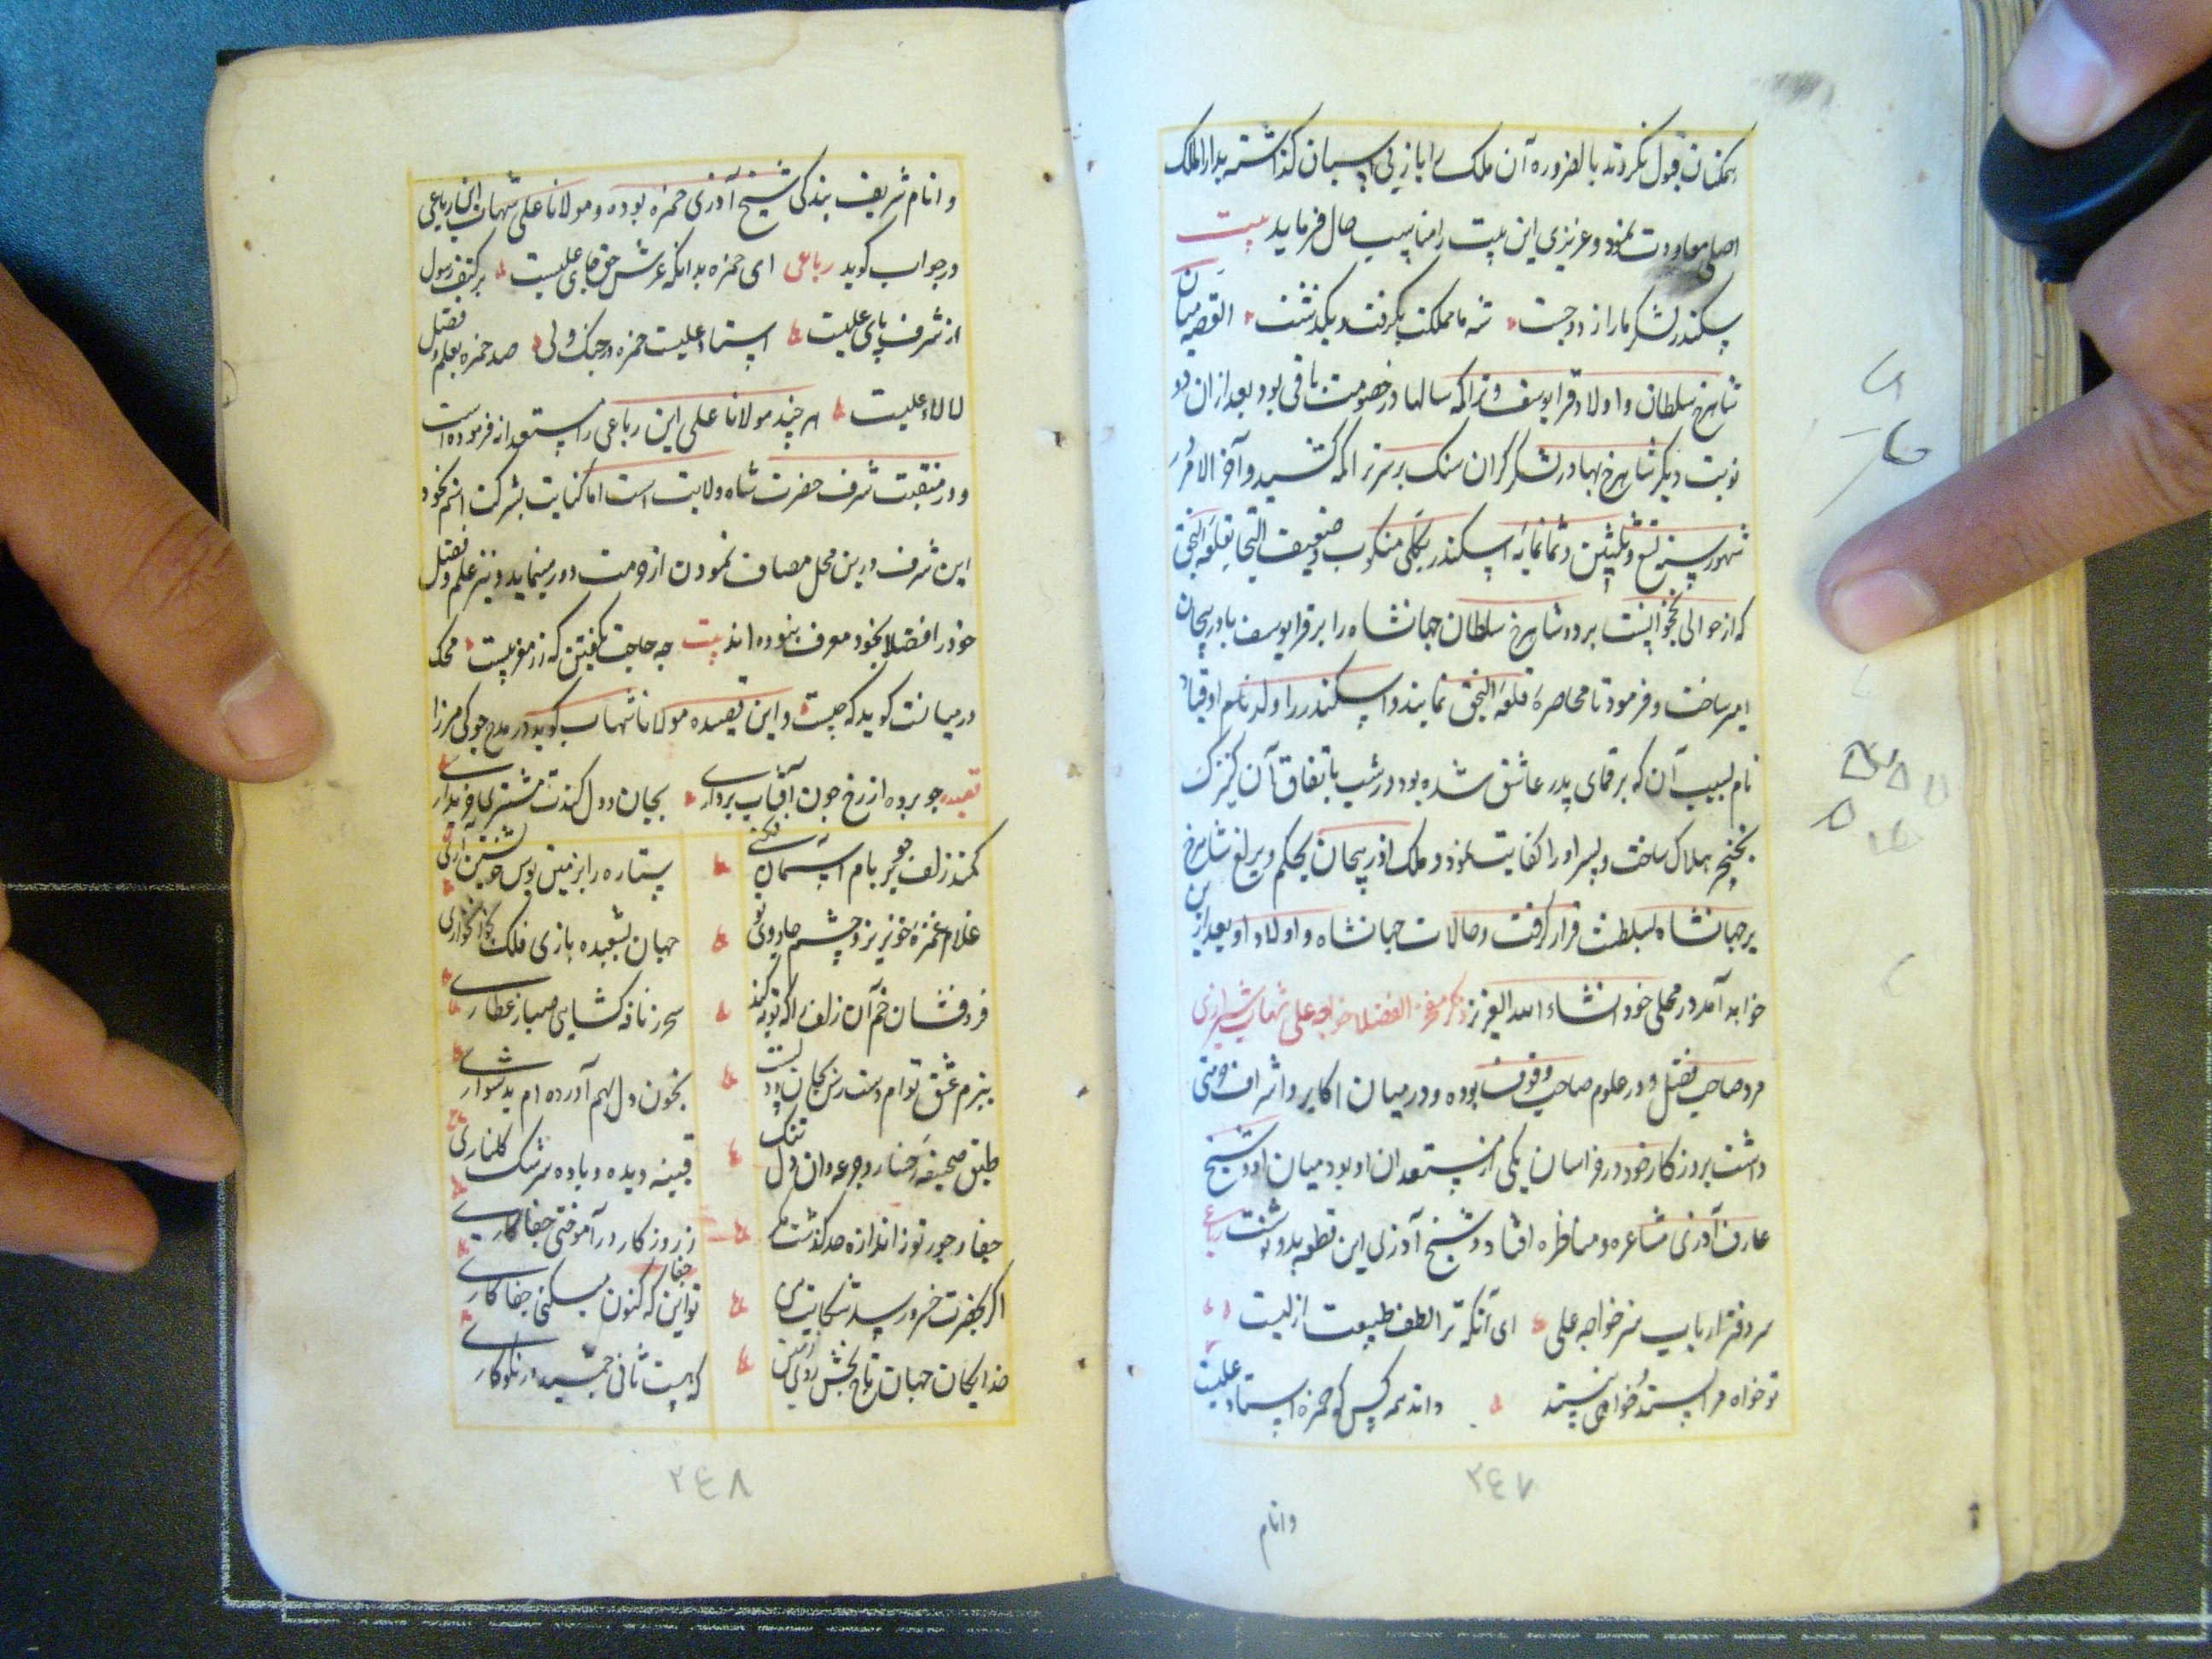 همکنان قبول نکردند بالضروره آن ملک را بازلی اسپان کذاشته بدارالملک
اصلی معاودت نمود و عزیزی این بیت را مناسب حال فرماید بیت
سکندر لشکر ما را زد و جست شه ما مملکت بکرفت و بکذشت القصه میان
شاهرخ سلطان و اولاد قرا یوسف و تراکمه سالها در خصومت باقی بود بعد از ان دو
نوبت دیکر شاهرخ بهادر لشکر کران سنک بر سر تراکمه کشید و آخر الامر در
شهور سنه تسع و ثلثین و ثمانمایه اسکندر بکلی منکوب و ضعیف التجا بقلعه النجق
که از حوالی نخجوانست برده شاهرخ سلطان جهانشاه را بر قرا یوسف باذربیجان
امیر ساخت و فرمود تا محاصره قلعه النجق نمایند و اسکندر را ولد ناسم او قباد
نام بسبب آن که بر قمای پدر عاشق شده بود در شب باتفاق آن کنیزک
بخنجر هلاک ساخت و پسر او را کفایت نمود و ملک اذربیجان بحکم و یرلغ شاهرخ
بر جهانشاه بسلطنت قرار کرفت و حالات جهانشاه و اولاد او بعد ازین
خواهد آمد در محلی خود انشاء الله العزیز ذکر مفخر الفضلا خواجه علی شهاب شیرازی
مرد صاحب فضل و در علوم صاحب وقوف بوده و در میان اکابر و اشراف حرمتی
داشت بروزکار خود در خراسان یکی از مستعدان او بود میان او و شیخ
عارف آذری مشاعره و مناظره افتاد و شیخ آذری این قطعه بدو نوشت رباعی
سر دفتر ارباب هنر خواجه علی ای آنکه ترا لطف طبیعت ازلیست
تو خواه مرا پسند و خواهی مپسند دانند همه کس که حمزه استاد علیست
۲٤۷
و انام
و انام شریف بندکی شیخ آذری حمزه بوده و مولانا علی شهاب این رباعی
در جواب کوید رباعی ای حمزه بدانکه عرش حق جای علیست بر کتف رسول
از شرف پای علیست استاد علیست حمزه در جنک ولی صد حمزه بعلم و فضل
لالاء علیست هر چند مولانا علی این رباعی را مستعدانه فرموده است
و در منقبت شرف حضرت شاه ولایت است اما کنایت بشرکت اسم بخود
این شرف درین محل مصاف نمودن از حرمت دور مینماید و نیز علم و فضل
خود را فضلا بخود معرف نبوده اند بیت چه حاجت بکفتن که زر مغربیست محک
در میانست کوید که چیست و این قصیده مولانا شهاب کوید در مدح جوکی مرزا
قصیده چو پرده از رخ چون آفتاب برداری بجان و دل کندت مشتری خریداری
کمند زلف چو بر بام آسمان فکنی ستاره را بزمین بوس خویشتن آری
غلام غمزه خونریز و چشم جادوی تو جهان بشعبده بازی فلک بخونخواری
فرو فشان خم آن زلف را که توبه کند سحر ز نافه کشایی صبا ز عطاری
ببزم عشق توام دست رس بجان بودست بخون دل بهم آورده ام بدشواری
طبق صحیفه رخسار و جرعه دان دل تنک قنینه دیده و باده سرشک کلناری
جفا و جور تو ز اندازه حد کذشت ز روزکار در آموختی جفاکاری
اکر بحضرت خسرو رسد شکایت من تو این که کنون میکنی جفا کاری
خدایکان جهان تاج بخش روی زمین که هست ثانی جمشید در نکوکاری
۲٤۸